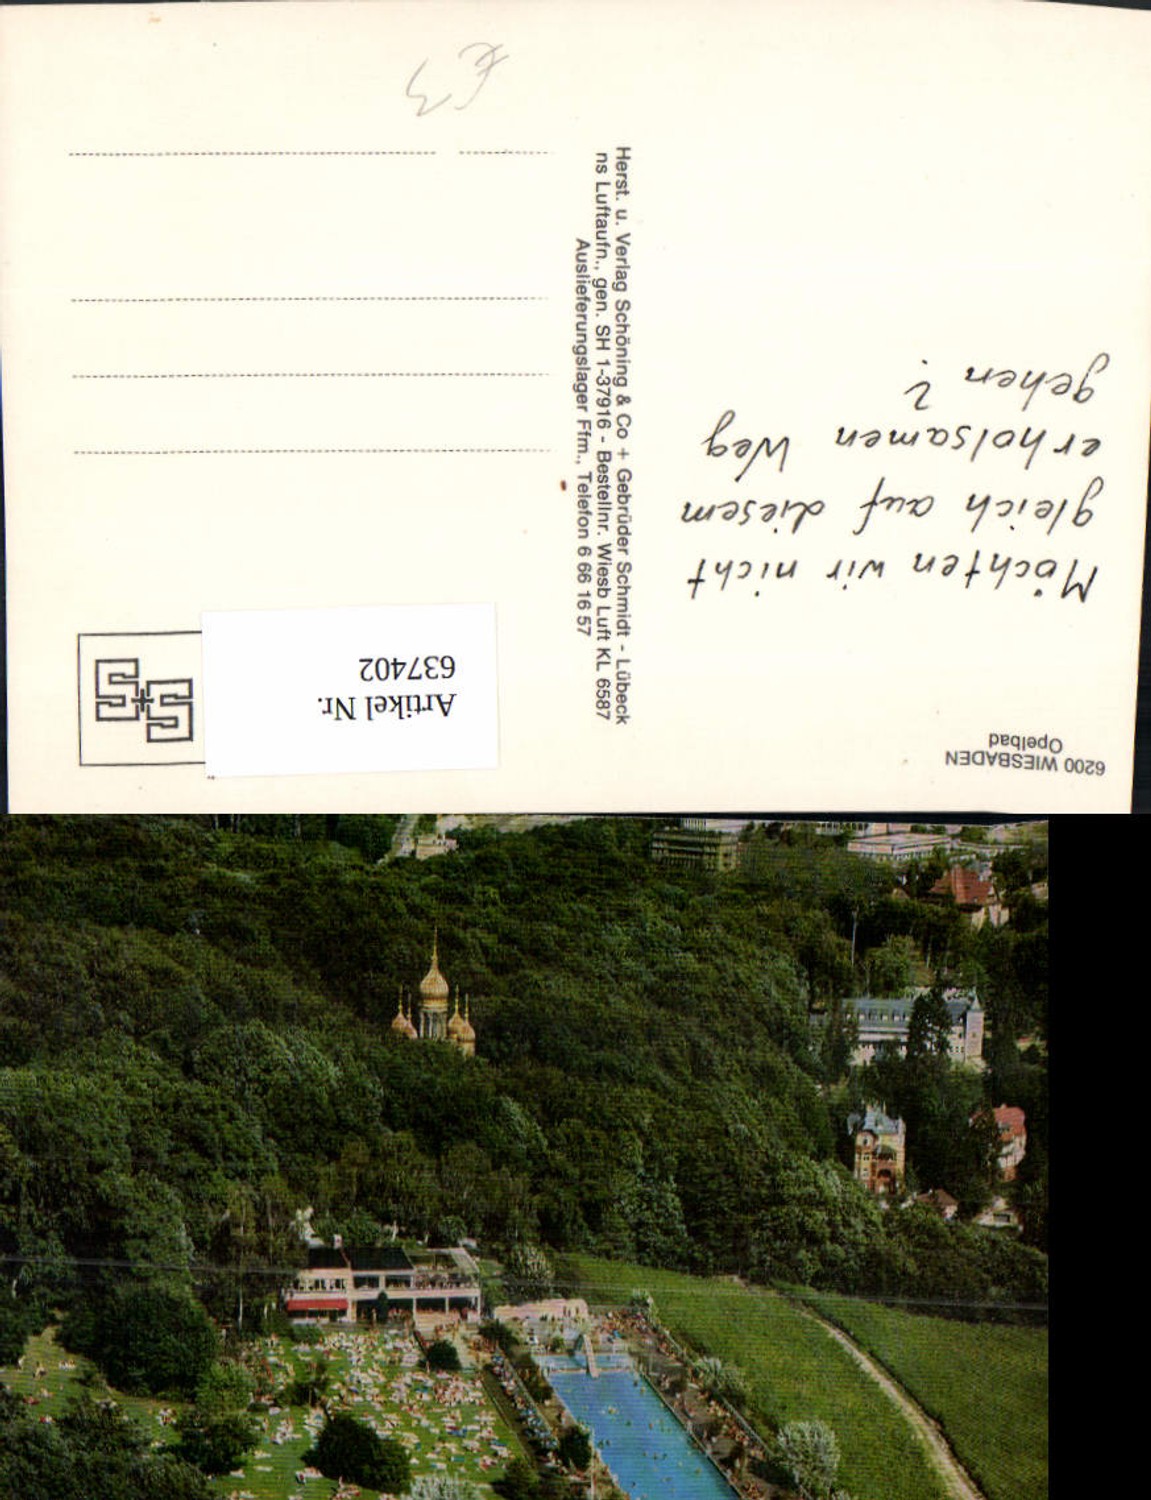 6200 WIESBADEN
Opelbad
Möchten wir nicht
gleich auf diesem
erholsamen Weg
gehen?
Herst. u. Verlag Schöning & Co + Gebrüder Schmidt - Lübeck
ns Luftaufn., gen. SH 1-37916 - Bestellnr. Wiesb Luft KL 6587
Auslieferungslager Ffm., Telefon 6 66 16 57
Artikel Nr.
637402
S+S
€3